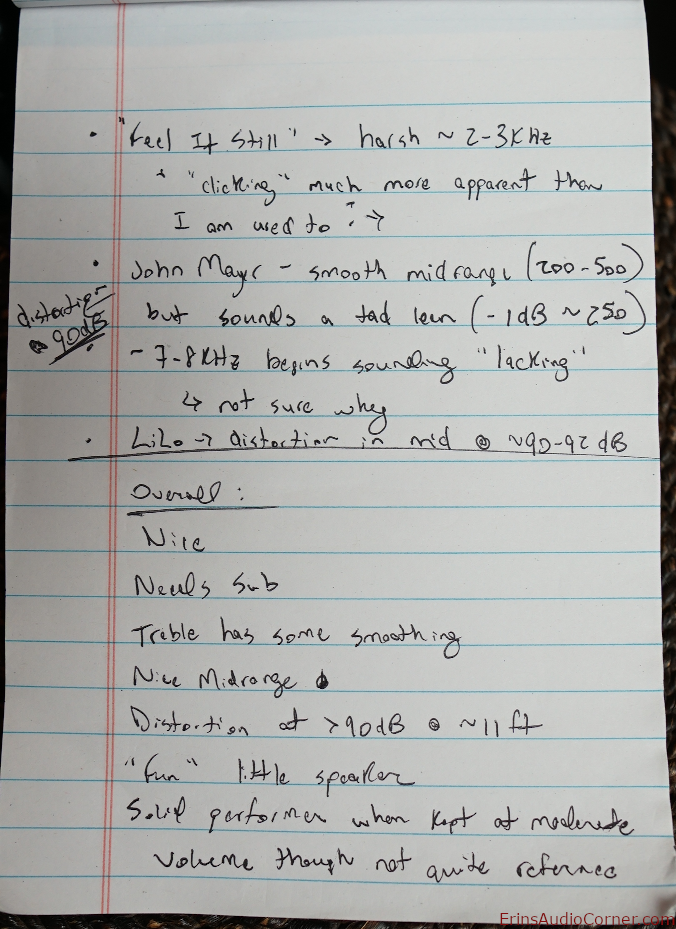 • "Feel It Still" → harsh ~ 2-3KHz
* "clicking" much more apparent than
I am used to ? →
• John Mayer - smooth midrange (200-500)
distortion
@ 90dB
but sounds a tad lean (-1dB ~ 250)
- 7-8KHz begins sounding "lacking"
↳ not sure why
• LiLo → distortion in mid @ ~90-92 dB
Overall :
Nice
Needs Sub
Treble has some smoothing
Nice Midrange
Distortion at >90dB @ ~11 ft
"fun" little speaker
Solid performer when kept at moderate
volume though not quite reference
ErinsAudioCorner.com